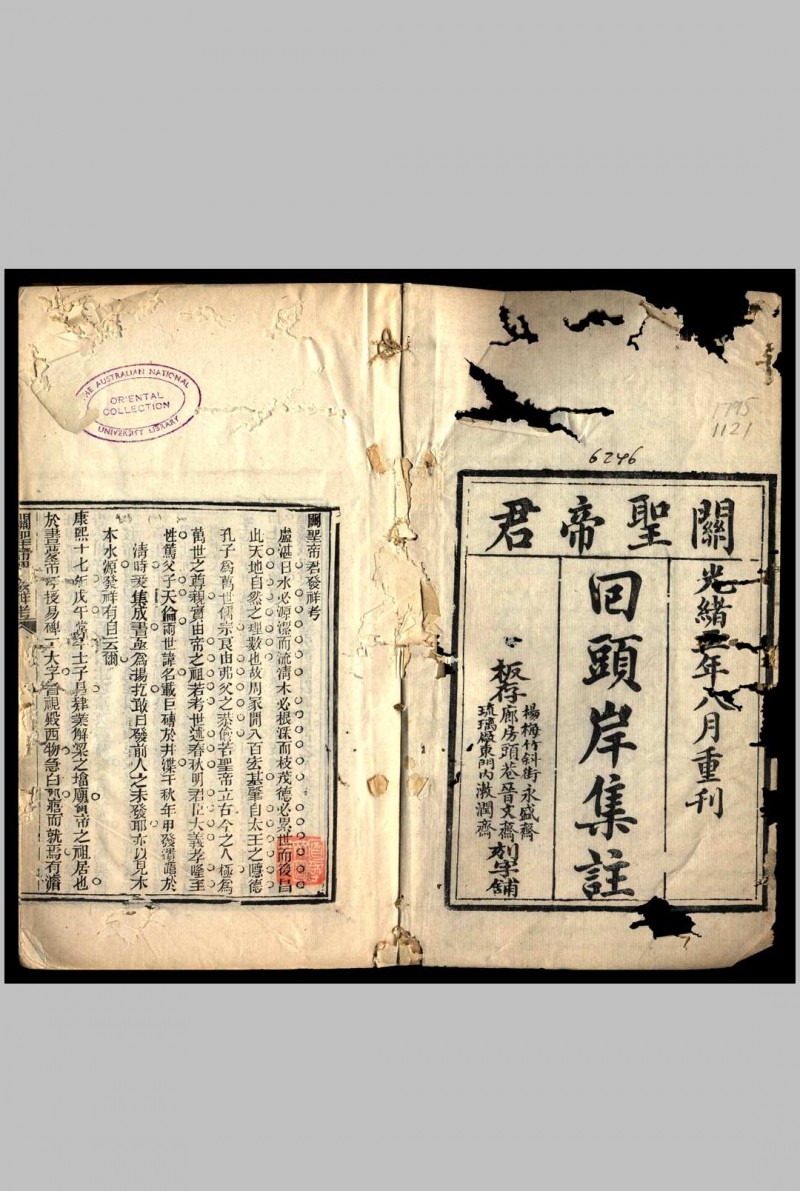 關聖帝君
光緒年八月重刊
回頭岸集註
板存
楊梅竹斜街永盛齋
廊房頭巷晉文齋
琉璃廠東門內漱潤齋
刻字舖
6246
1795
1121
THE AUSTRALIAN NATIONAL
ORIENTAL
COLLECTION
UNIVERSITY LIBRARY
關聖帝君發祥考
盧湛曰水必源潔而流清木必根深而枝茂德必累世而後昌
此天地自然之理數也故周家開八百宏基肇自太王之隱德
孔子為萬世儒宗良由弗父之恭儉若聖帝立古今之人極為
萬世之尊親實由帝之祖若考世述春秋明君臣大義孝隆至
性篤父子天倫兩世諱名載巨磚於井堞千秋年甲發於
清時爰集成書亟為揚扢敢曰發前人之未發耶亦以見木
本水源發祥有自云爾
康熙十七年戊午常平士子昌肄業解梁之塔廟實帝之祖居也
於晝夢帝呼授易碑二大字督視殿西物急白郡寤而就焉有濬
關聖帝發祥考